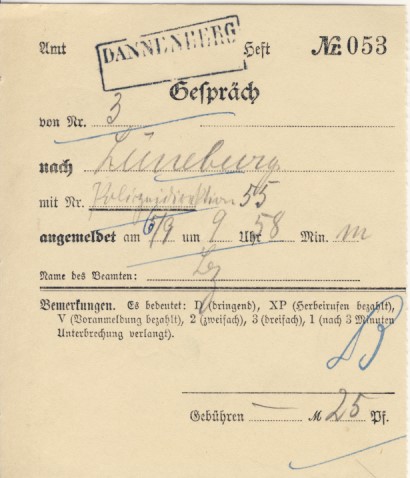 Amt DANNENBERG Heft № 053
Gespräch
von Nr. 3
nach Lüneburg
mit Nr. Polizeidirektion 55
angemeldet am 6/9 um 9 Uhr 58 Min. m
Name des Beamten:
Bemerkungen. Es bedeutet: D (dringend), XP (Herbeirufen bezahlt),
V (Voranmeldung bezahlt), 2 (zweifach), 3 (dreifach), 1 (nach 3 Minuten
Unterbrechung verlangt).
Gebühren — M 25 Pf.